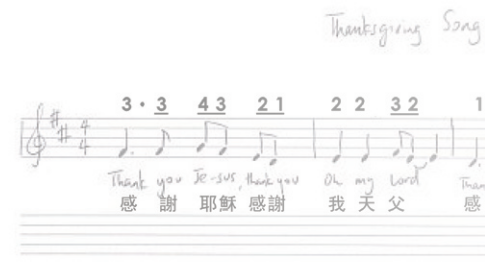 Thanksgiving Song
3 · 3 4 3 2 1 2 2 3 2 1
4 4
Thank you Je-sus, thank you Oh my Lord Than
感 謝 耶穌 感謝 我 天 父 感